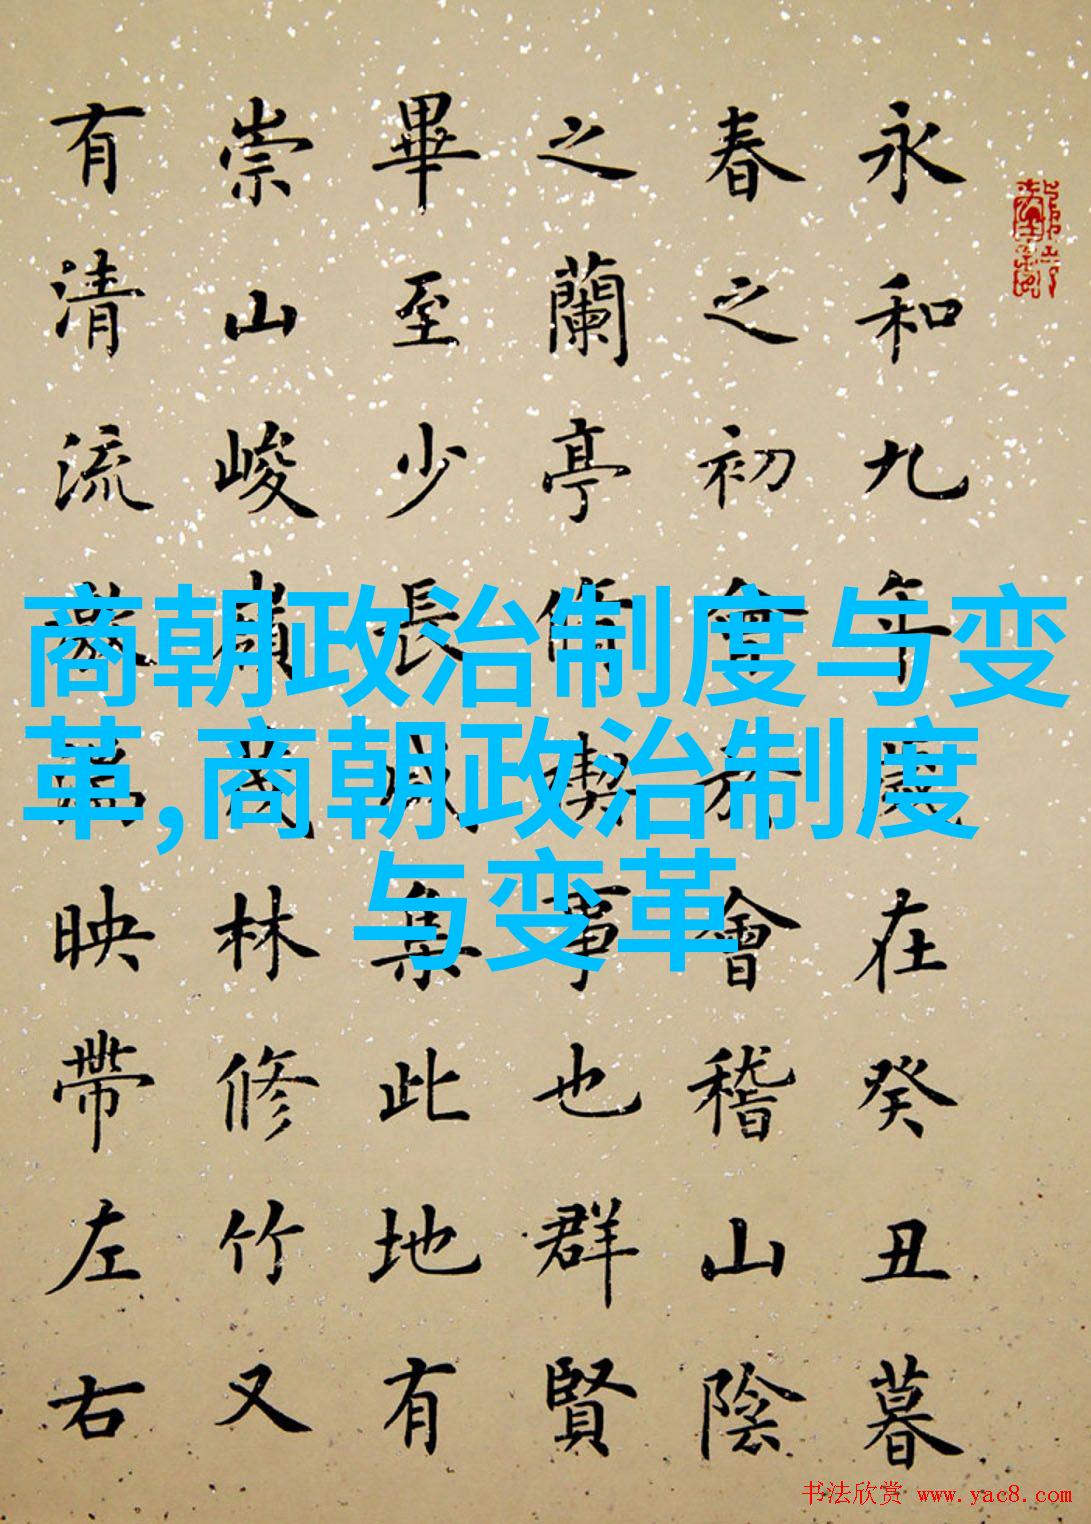 商朝政治制度与变
革,商朝政治制度
与变革
永和九年歲在癸丑暮
春之初會於會稽山陰
之蘭亭脩禊事也群賢
畢至少長咸集此地有
崇山峻嶺茂林修竹又
有清流激湍映帶左右
书法欣赏 www.yac8.com